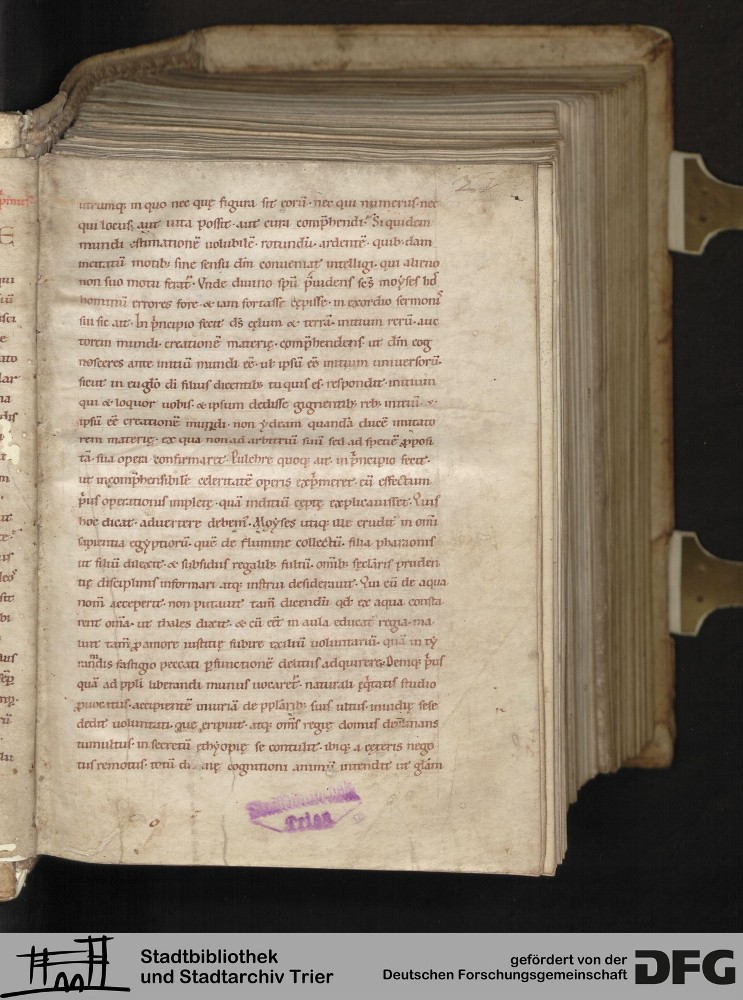 utrumq; in quo nec quę figura sit eorū· nec qui numerus· nec
qui locus, aut uita possit· aut cura comp̄hendi. Siquidem
mundi estimationē uolubilē· rotundū· ardentē· quib;dam
incitatū motib; sine sensu dm̄ conueniat intelligi· qui alieno
non suo motu ferat᷑· Vnde diuino spū p̄uidens sc̄s moẏses
hominū errores fore· & iam fortasse cępisse· in exordio sermonis
sui sic ait· In p̄ncipio fecit ds̄ cęlum & terrā· initium rerū· auc
torem mundi· creationē materię· comp̄hendens ut dm̄ cog
nosceres ante initiū mundi eē· ul̄ ipsū eē initium uniuersorū·
sicut in euglō di filius dicentib; tu quis es· respondit· initium
qui & loquor uobis· & ipsum dedisse gignentib; reb; initiū· &·
ipsū eē creatorē mundi· non ẏdeam quandā ducē imitato
rem materię· ex qua non ad arbitriū suū sed ad speciē p̱posi
tā· sua opera confirmaret· Pulchre quoq; ait· in p̄ncipio fecit·
ut incomp̄hensibilē celeritatē operis exp̄meret· cū effectum
p̄us operationis implętę· quā inditiū cęptę explicauisset· Quis
hoc dicat· aduertere debem᷒· Moẏses utiq; ille erudit᷒ in om̄i
sapientia egẏptiorū· quē de flumine collectū· filia pharaonis
ut filiū dilexit· & subsidiis regalib; fultū· omib; sęcl̄aris pruden
tię disciplinis informari atq; instrui desiderauit· Qui cū de aqua
nom̄ acceperit· non putauit tam̄ dicendū qđ ex aqua consta
rent om̄a· ut thales dixit· & cū eēt in aula educat᷒ regia· ma
luit tam̄ p̱ amore iustitię subire exiliū uoluntariū· quā in tẏ
rannidis fastigio peccati p̱functionē delitiis adquirere· Deniq; p̄us
quā ad ppl̄i liberandi munus uocaret᷑· naturali ęq̇tatis studio
p̱uocatus· accipientē iniuriā de pplarib; suis ultus· inuidię sese
dedit uoluntati· que eripuit· atq; om̄s regię domus declinans
tumultus· in secretū ethẏopię se contulit· ibiq; a cęteris nego
tiis remotus· totū di aię cognitioni animū intendit ut glām
Stadtbibliothek
Trier
Stadtbibliothek
und Stadtarchiv Trier
gefördert von der
Deutschen Forschungsgemeinschaft
DFG